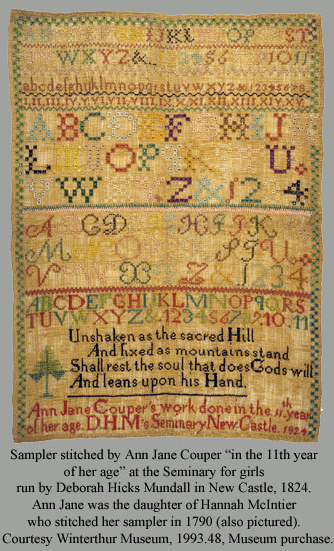 AB IJKL OP ST
WXYZ& 3456 1011
abcdefghijklmnopqrstuvwxyz&12345678
I.II.III.IV.V.VI.VII.VIII.IX.X.XI.XII.XIII.XIV.XV.
ABCD F H J
L OP U
V W Z & 1 2 4
A CD HIJK
M O U
V Z & 1234
ABCDEFGHIJKLMNOPQRS
TUVWXYZ&.123456789.10.11
Unshaken as the sacred Hill
And fixed as mountains stand
Shall rest the soul that does Gods will
And leans upon his Hand.
Ann Jane Couper's work done in the 11th year
of her age. D.H.M's Seminary New Castle. 1824
Sampler stitched by Ann Jane Couper “in the 11th year
of her age” at the Seminary for girls
run by Deborah Hicks Mundall in New Castle, 1824.
Ann Jane was the daughter of Hannah McIntier
who stitched her sampler in 1790 (also pictured).
Courtesy Winterthur Museum, 1993.48, Museum purchase.